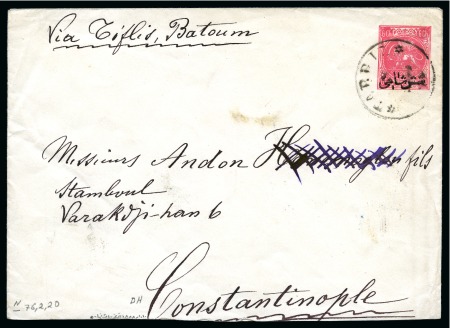 Via Tiflis, Batoum
TABRIZ
Messieurs Andon fils
Stamboul
Varakdji-han 6
Constantinople
76,2,20
DH